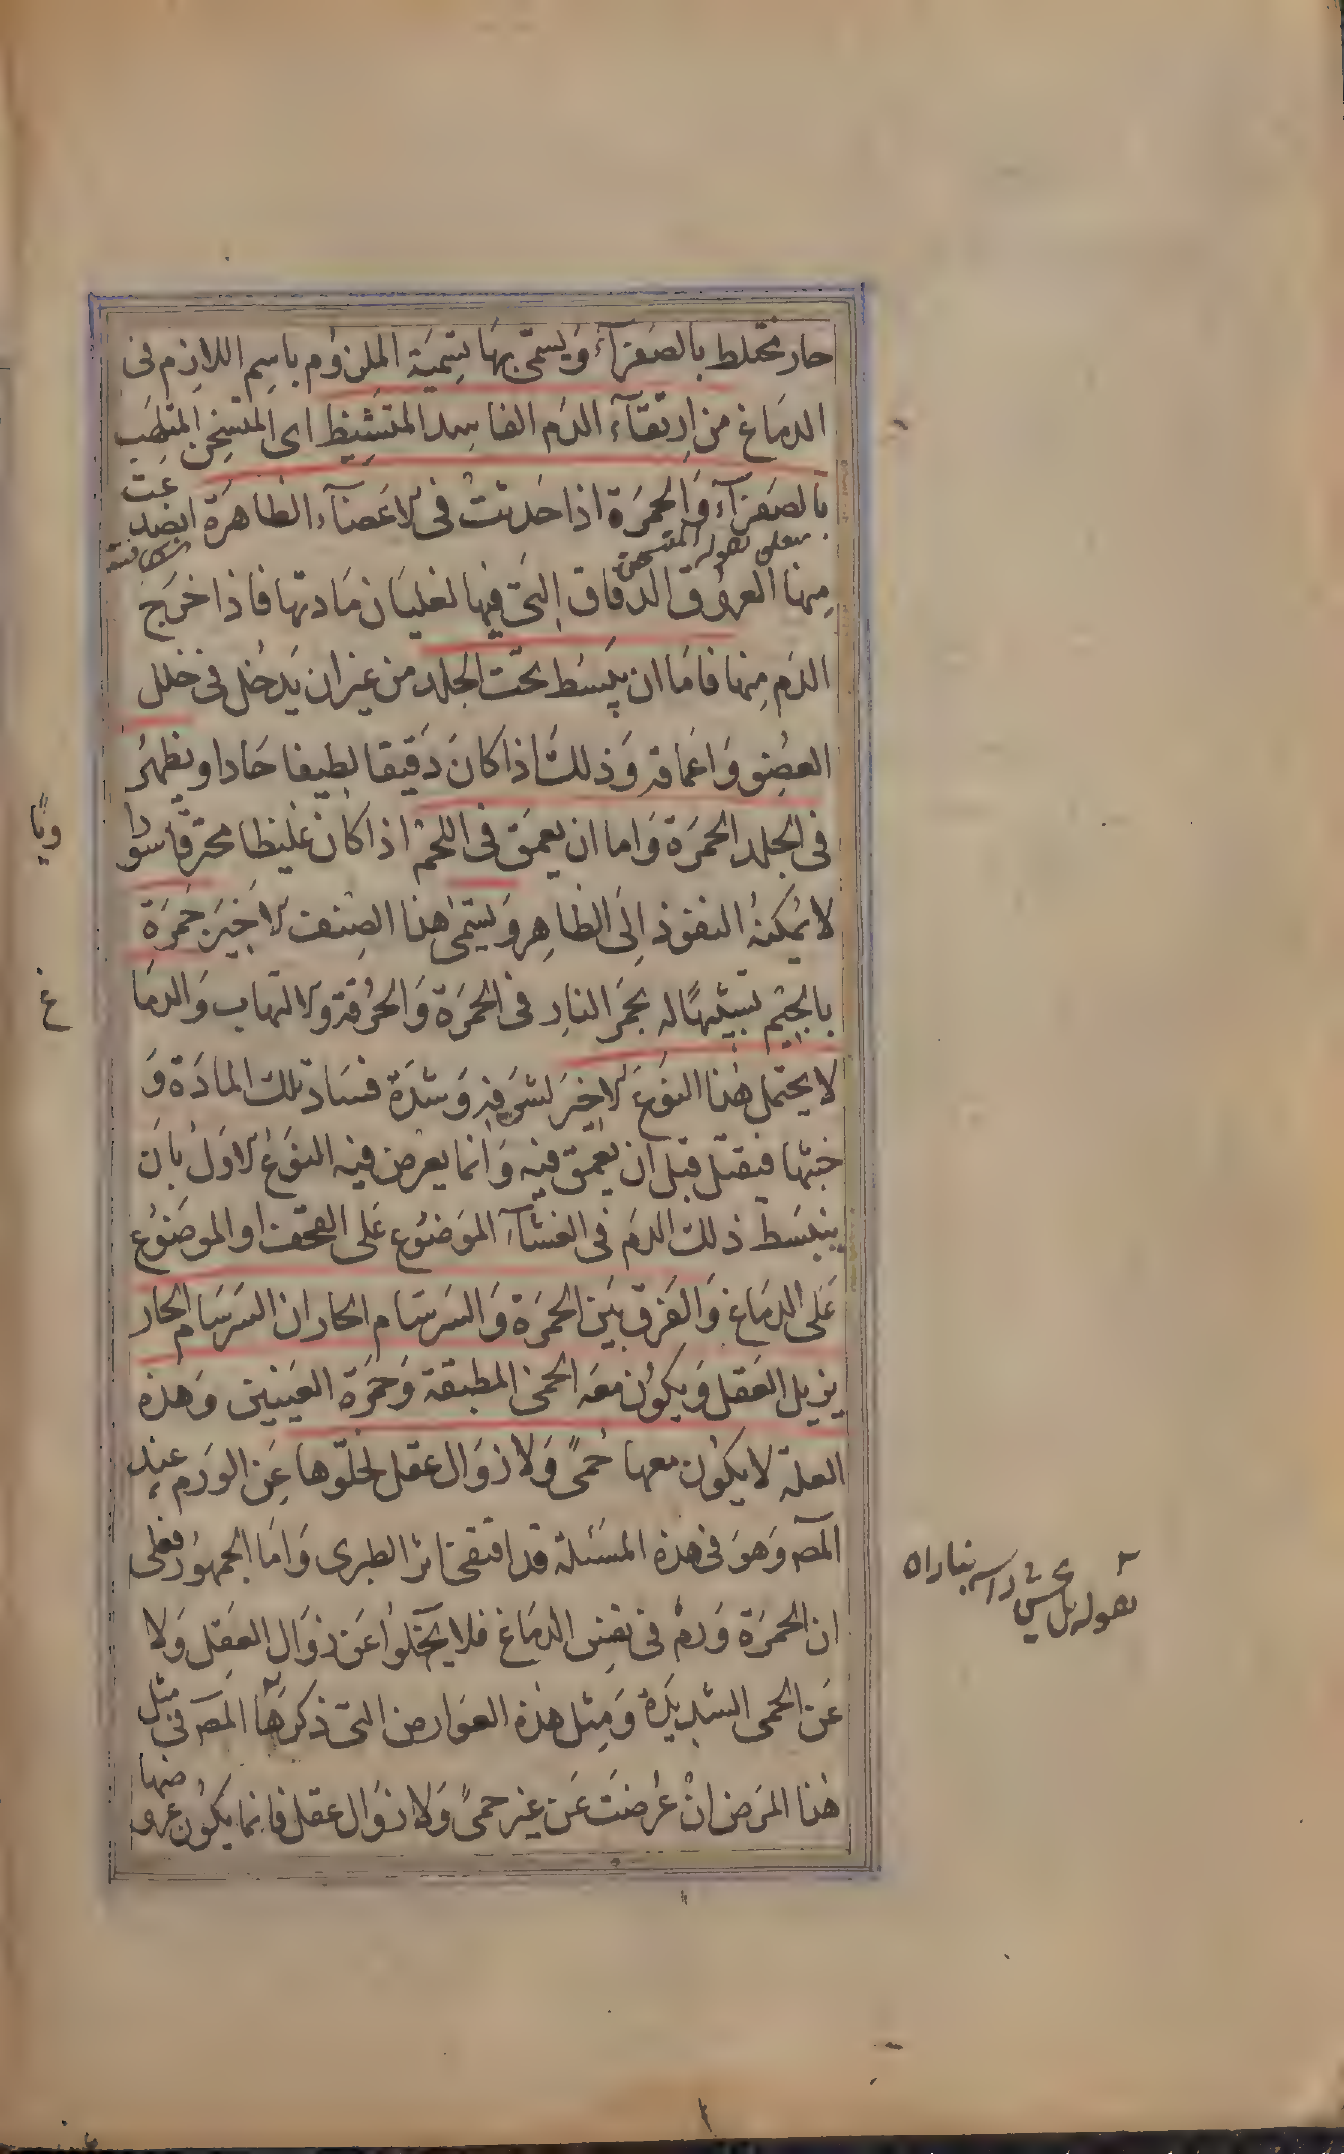 حار مختلط بالصفرآء وَيسمّى بهَا تسِميَة الملزوُم باسِم اللازم فى
الدمَاغ من اِرتقآء الدَم الفاسِد المتَشِيظ اى المتسَخِن المتلهِّب
بالصفرَآء وَالحمرَة اذا حَدثتْ فى الاعَضآء الظاهرَة انصدعَت
متعلق بقوله المتسخن
مِنها العروُق الدقاق التى فيها لغليَان مَادتها فاذا خرَج
الدَم مِنها فامَا ان ينبَسُط تحت الجلد من غير ان يَدخُل فى خلل
العضُو وَاعمَاقه وَذلك اذا كانَ دَقيقا لطيفا حَادا ويظهرُ
فى الجلد الحمَرَة وَاما ان يعمَق فى اللحم اذا كان غليظا محترقًا سَوداويًا
لا يُمكِنهُ النفوذ اِلَى الظاهِر وَيسَمى هٰذا الصِنف الاخير جَمرَة
بالجيْم تشبيْهًا له بجَمَر النارِ فى الحمَرَة وَالحُرقة والالتهاب وَالدمَاغ
لا يحتمل هٰذا النوَع الاخير لشرَفِه وَشدَة فسَاد تلك المادَة وَ
خبثها فيقتل قبل ان يعمق فيْه وَانما يعرُض فيه النوَعُ الاوَل بانَ
ينبسَط ذلك الدَم فى الغشآء الموَضوُع عَلى القحف او الموَضوُع
عَلى الدمَاغ وَالفرَق بيَن الحمَرَة وَالسَرسَام الحار ان السَرسَام الحار
يزيل العَقل وَيكوُن معَه الحمىٰ المطبقة وَحمَرَة العَينين وَهذه
العلة لا يكوُن معها حُمىً وَلا زوَال عقل لخلّوها عَن الورَم عِند
المصَ وَهوَ فى هٰذه المسَئلة قد اقتفى اثر الطبرى وَامَا الجمهوُر فعلى
ان الحمَرَة وَرمْ فى نفسِ الدمَاغ فلا يخَلوا عَن زوَال العَقِل وَلا
عَن الحمى الشديَدة وَمِثل هٰذه العوَارض التى ذكرَهَا المصَ فى مثل
هٰذا المرَض انْ عُرضتَ عَن غير حمىً وَلا زوَال عقل فانما يكوُن عروضها